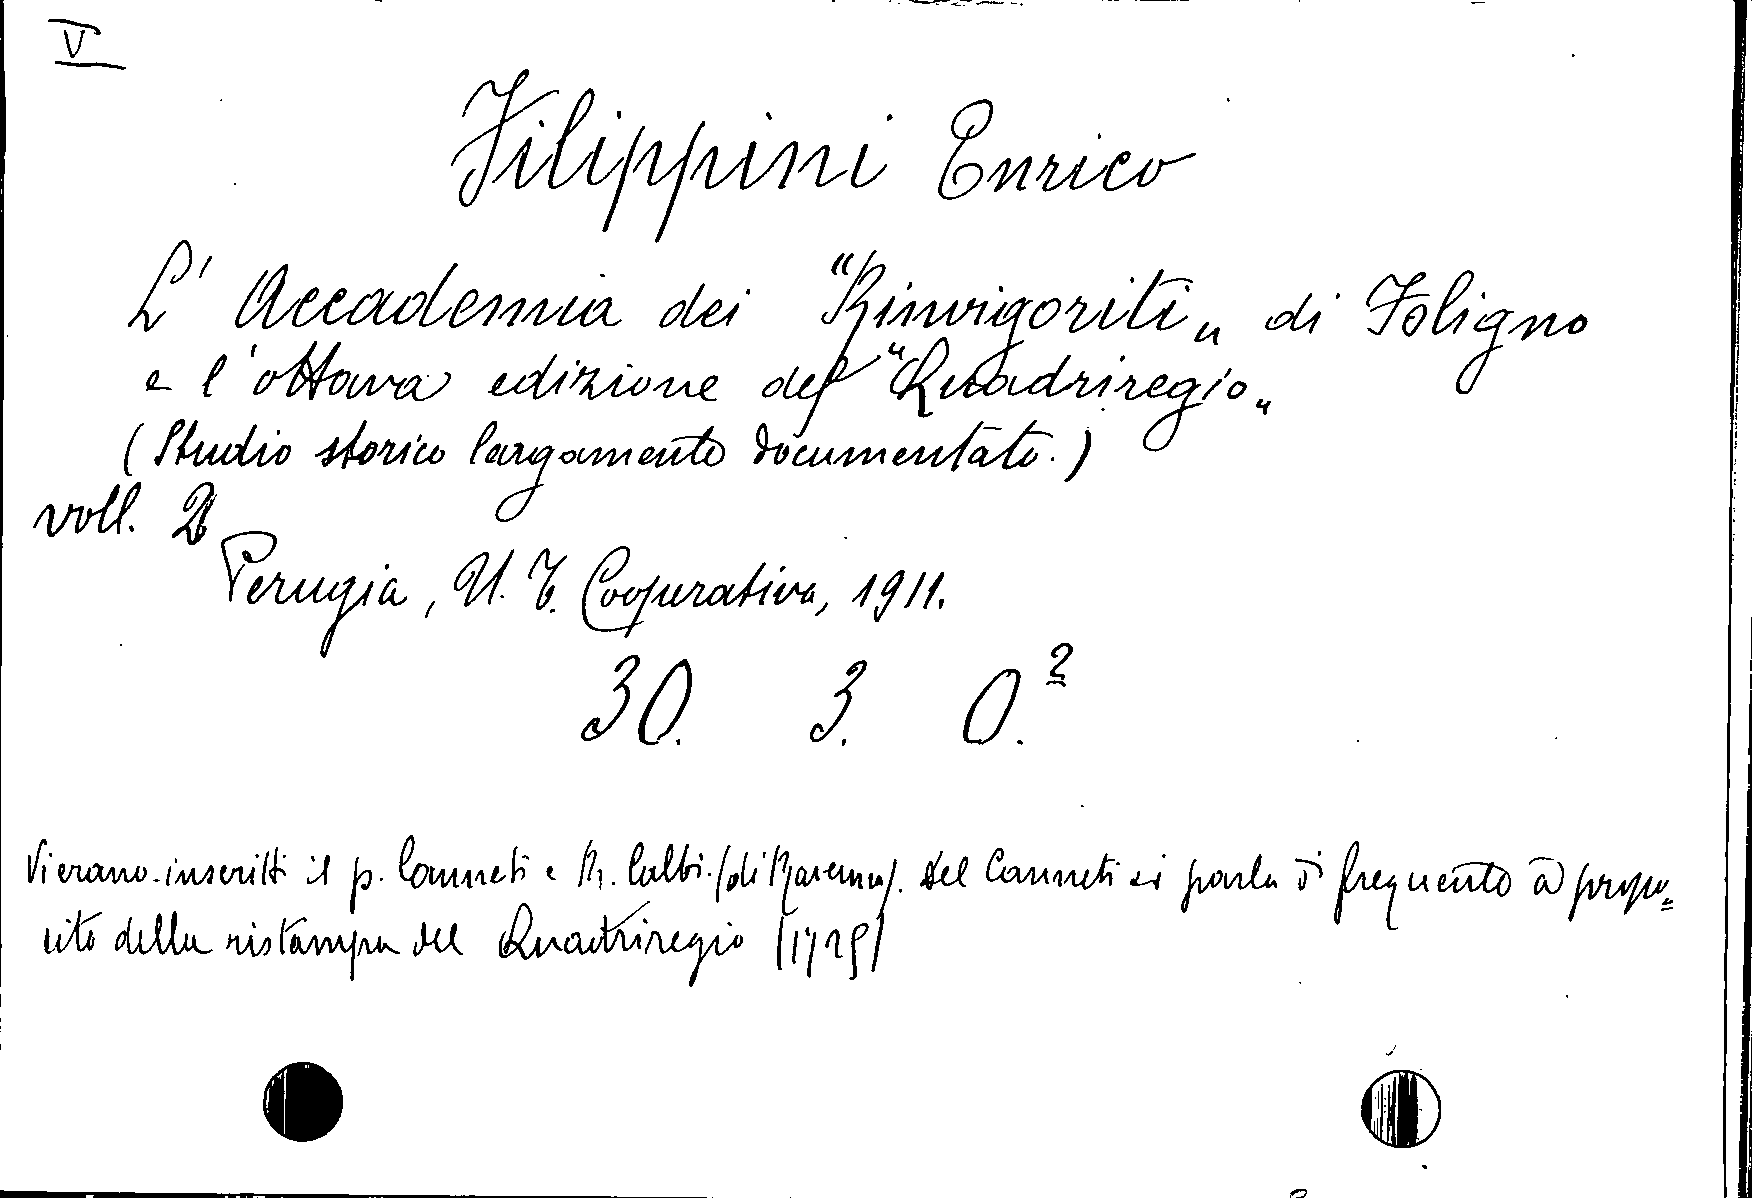 V
Filippini Enrico
L' Accademia dei "Rinvigoriti„ di Foligno
e l'ottava edizione del "Quadriregio„
(Studio storico largamente documentato.)
voll. 2
Perugia, U. T. Cooperativa, 1911.
30. 3. O.²
Vi erano inscritti il p. Canneti e R. Calbi (di Ravenna). Del Canneti si parla di frequente a propo=
sito della ristampa del Quadriregio (1725)